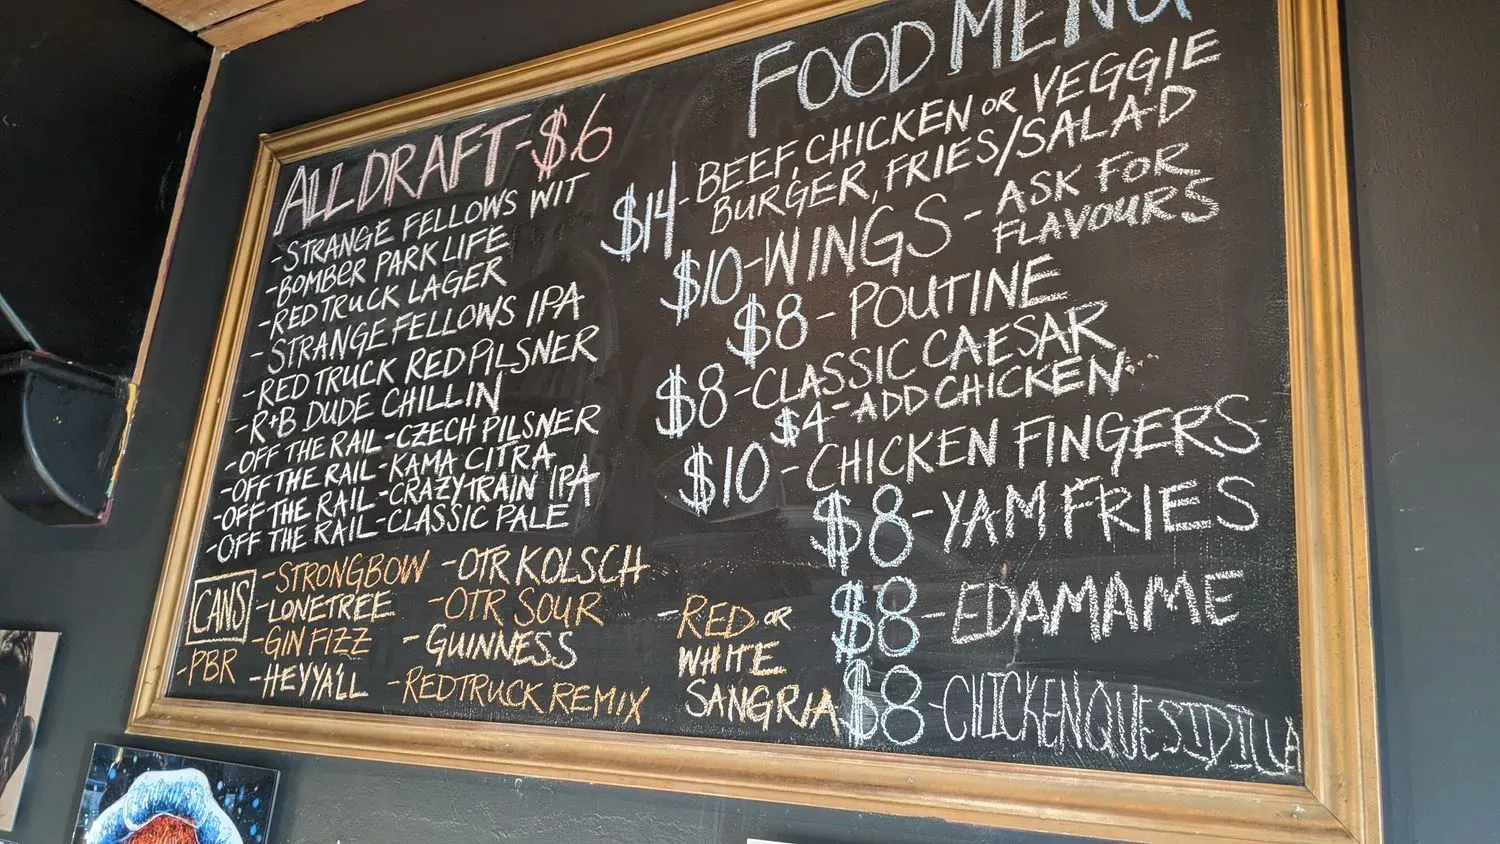 ALL DRAFT-$6
-STRANGE FELLOWS WIT
-BOMBER PARK LIFE
-RED TRUCK LAGER
-STRANGE FELLOWS IPA
-RED TRUCK RED PILSNER
-R+B DUDE CHILLIN
-OFF THE RAIL-CZECH PILSNER
-OFF THE RAIL-KAMA CITRA
-OFF THE RAIL-CRAZY TRAIN IPA
-OFF THE RAIL-CLASSIC PALE
CANS
-STRONGBOW
-LONETREE
-GIN FIZZ
-PBR
-HEYYA'LL
-OTR KOLSCH
-OTR SOUR
-GUINNESS
-REDTRUCK REMIX
-RED OR
WHITE
SANGRIA
FOOD MENU
$14-BEEF, CHICKEN OR VEGGIE
BURGER, FRIES/SALAD
$10-WINGS - ASK FOR
FLAVOURS
$8-POUTINE
$8-CLASSIC CAESAR
$4-ADD CHICKEN
$10-CHICKEN FINGERS
$8-YAM FRIES
$8-EDAMAME
$8-CHICKEN QUESIDILLA